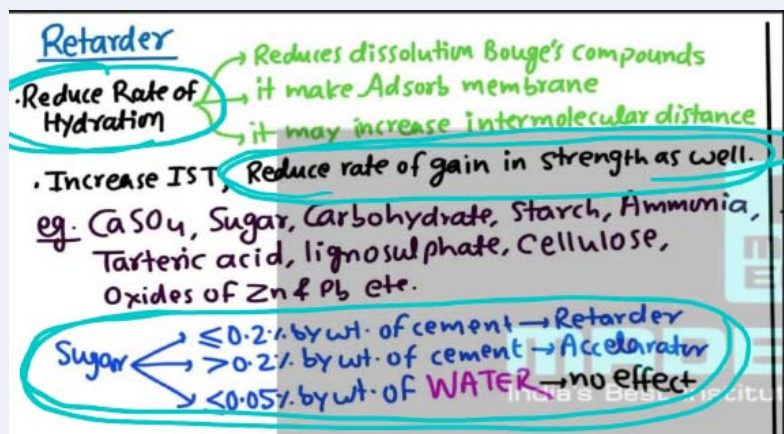 Retarder
Reduces dissolution Bouge's compounds
·Reduce Rate of
Hydration
it make Adsorb membrane
it may increase intermolecular distance
· Increase IST, Reduce rate of gain in strength as well.
eg. CaSO4, Sugar, Carbohydrate, Starch, Ammunia,
Tarteric acid, lignosulphate, Cellulose,
Oxides of Zn & Pb etc.
Sugar
≤0.2% by wt. of cement → Retarder
>0.2% by wt. of cement → Accelarator
<0.05% by wt. of WATER → no effect
India's Best Institu